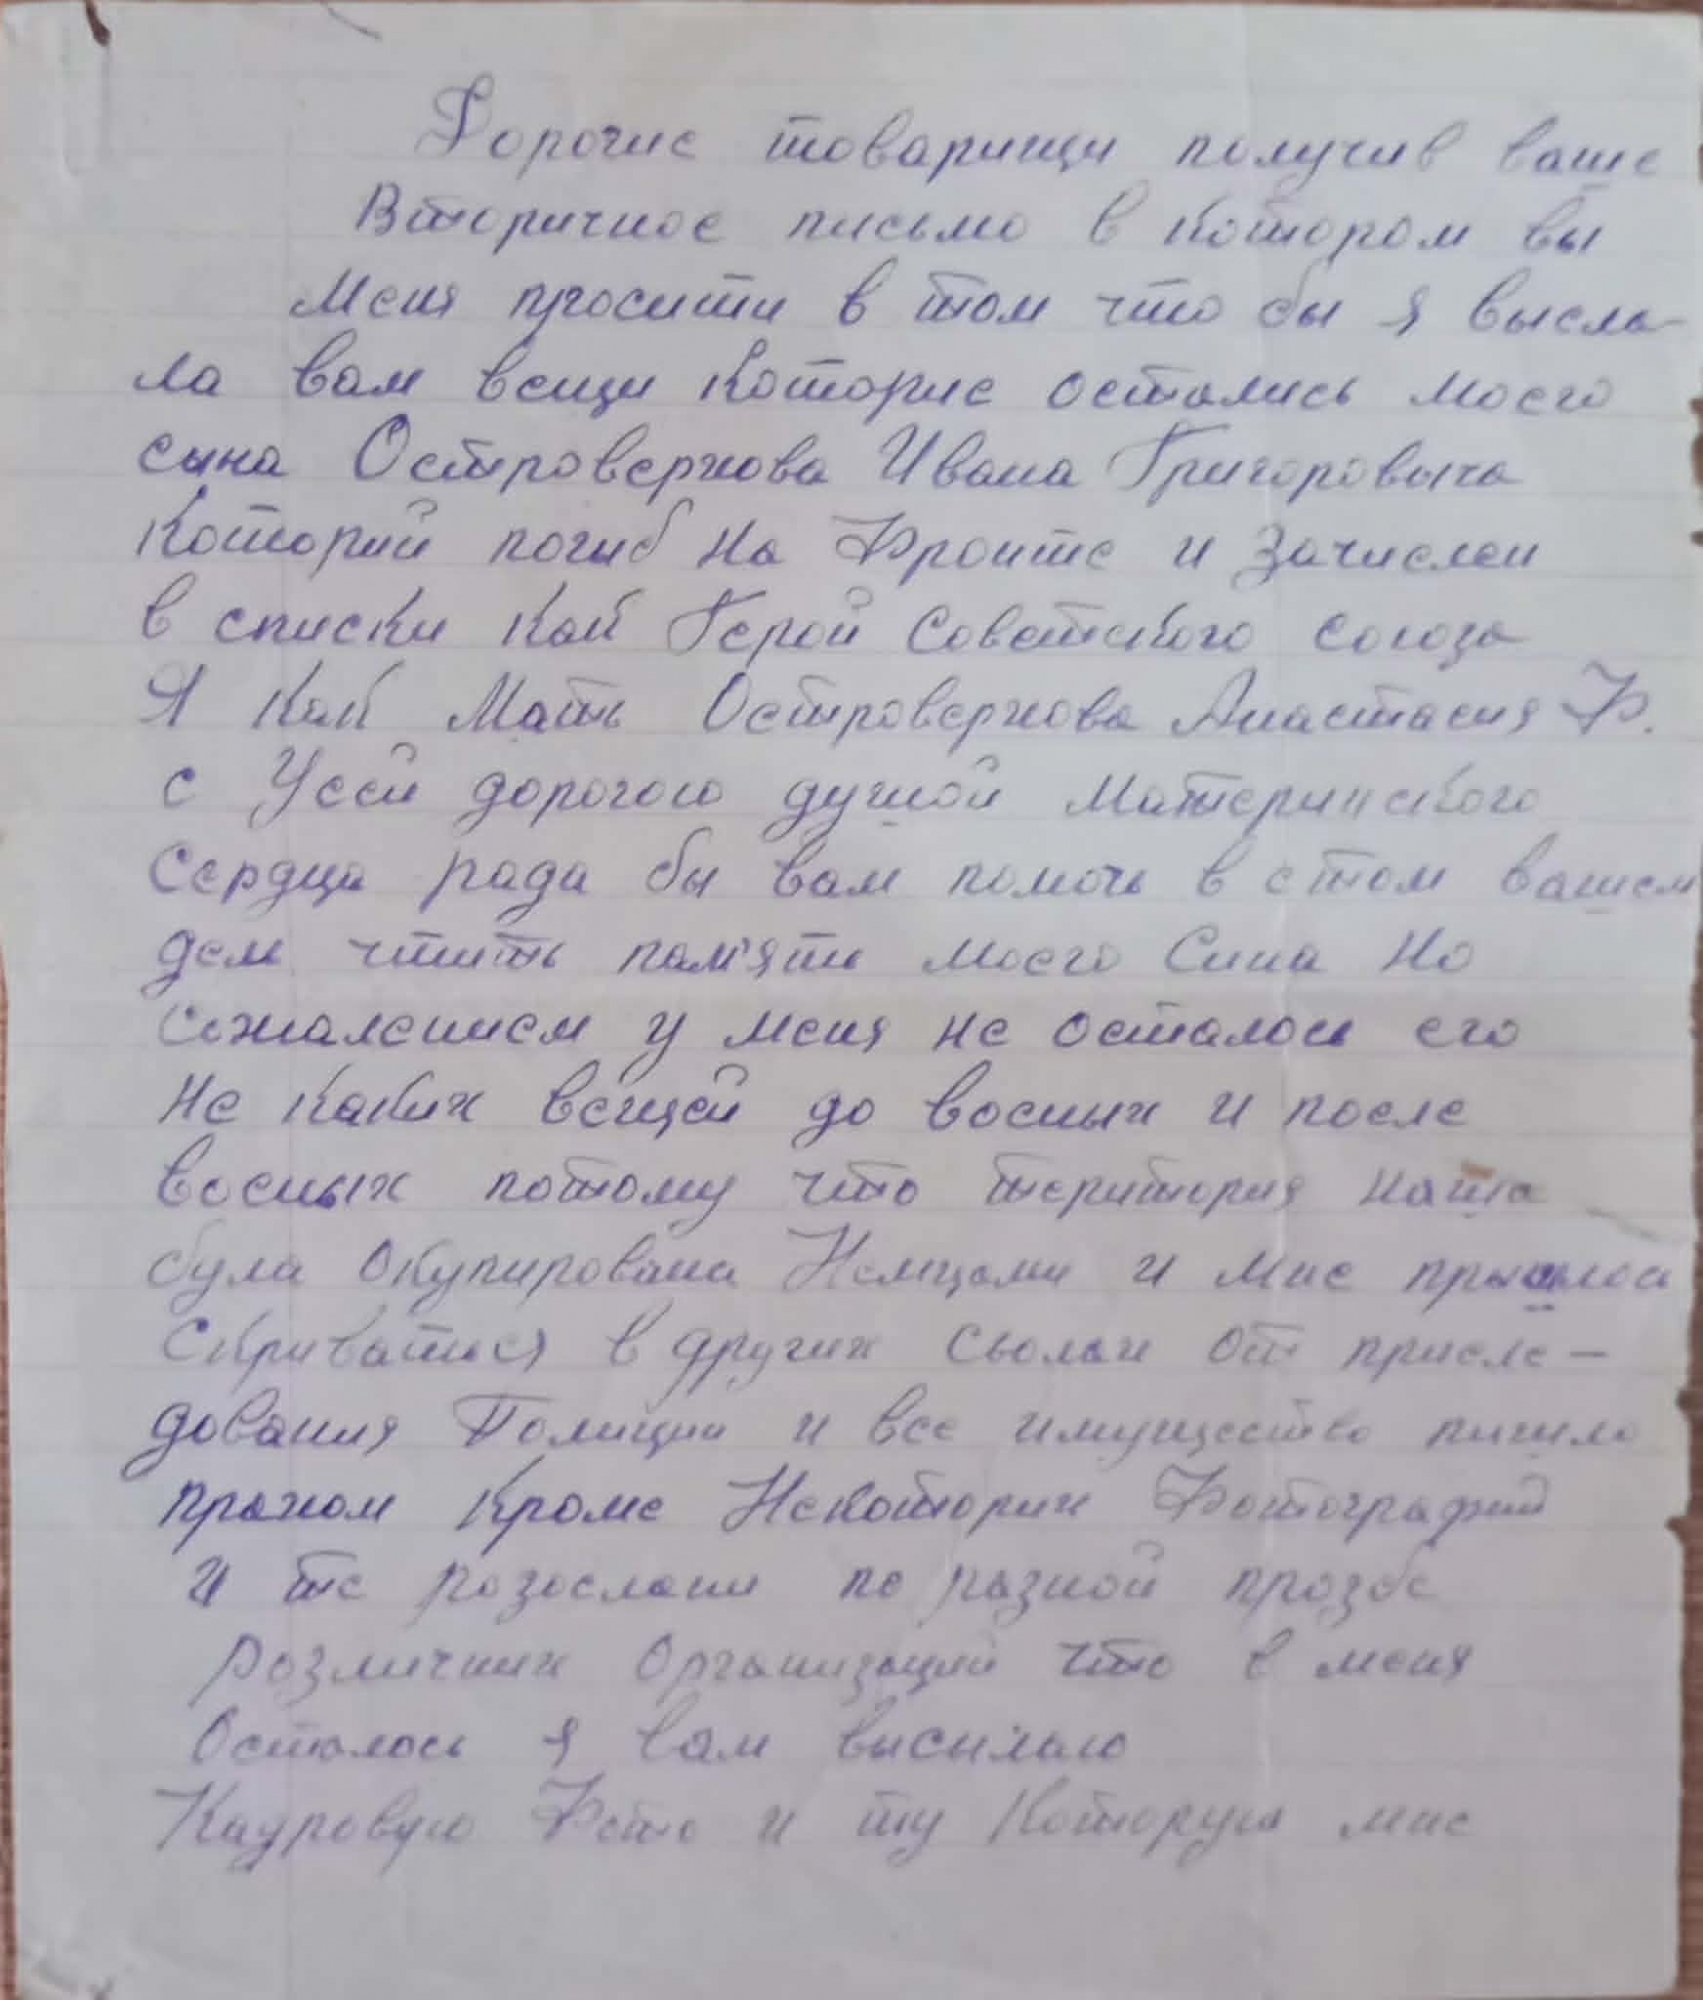 Дорогие товарищи получив ваше
Вторичное письмо в котором вы
Меня просити в том что бы я высла-
ла вам вещи Которие остались моего
сына Островерхова Ивана Григоровыча
Который погиб на Фронте и Зачислен
в списки Как Герой Советского союза
Я Как Мать Островерхова Анастасия Ф.
с Усей дорогою душой Материнского
Сердца рада бы вам помочь в етом вашем
деле чтить пам'ять моего Сина Но
Сожалением у меня не осталось его
Не каких вещей до военых и после
военых потому что територия наша
була Окупирована Немцами и мне пришлось
Скриватися в других сьолах от присле-
дования Полиции и все имущество пишло
прахом Кроме Некоторих Фотографий
и те розослани по разной прозбе
розличних Организаций что в меня
Осталось я вам висилаю
Кадровую Фото и ту Которую мне